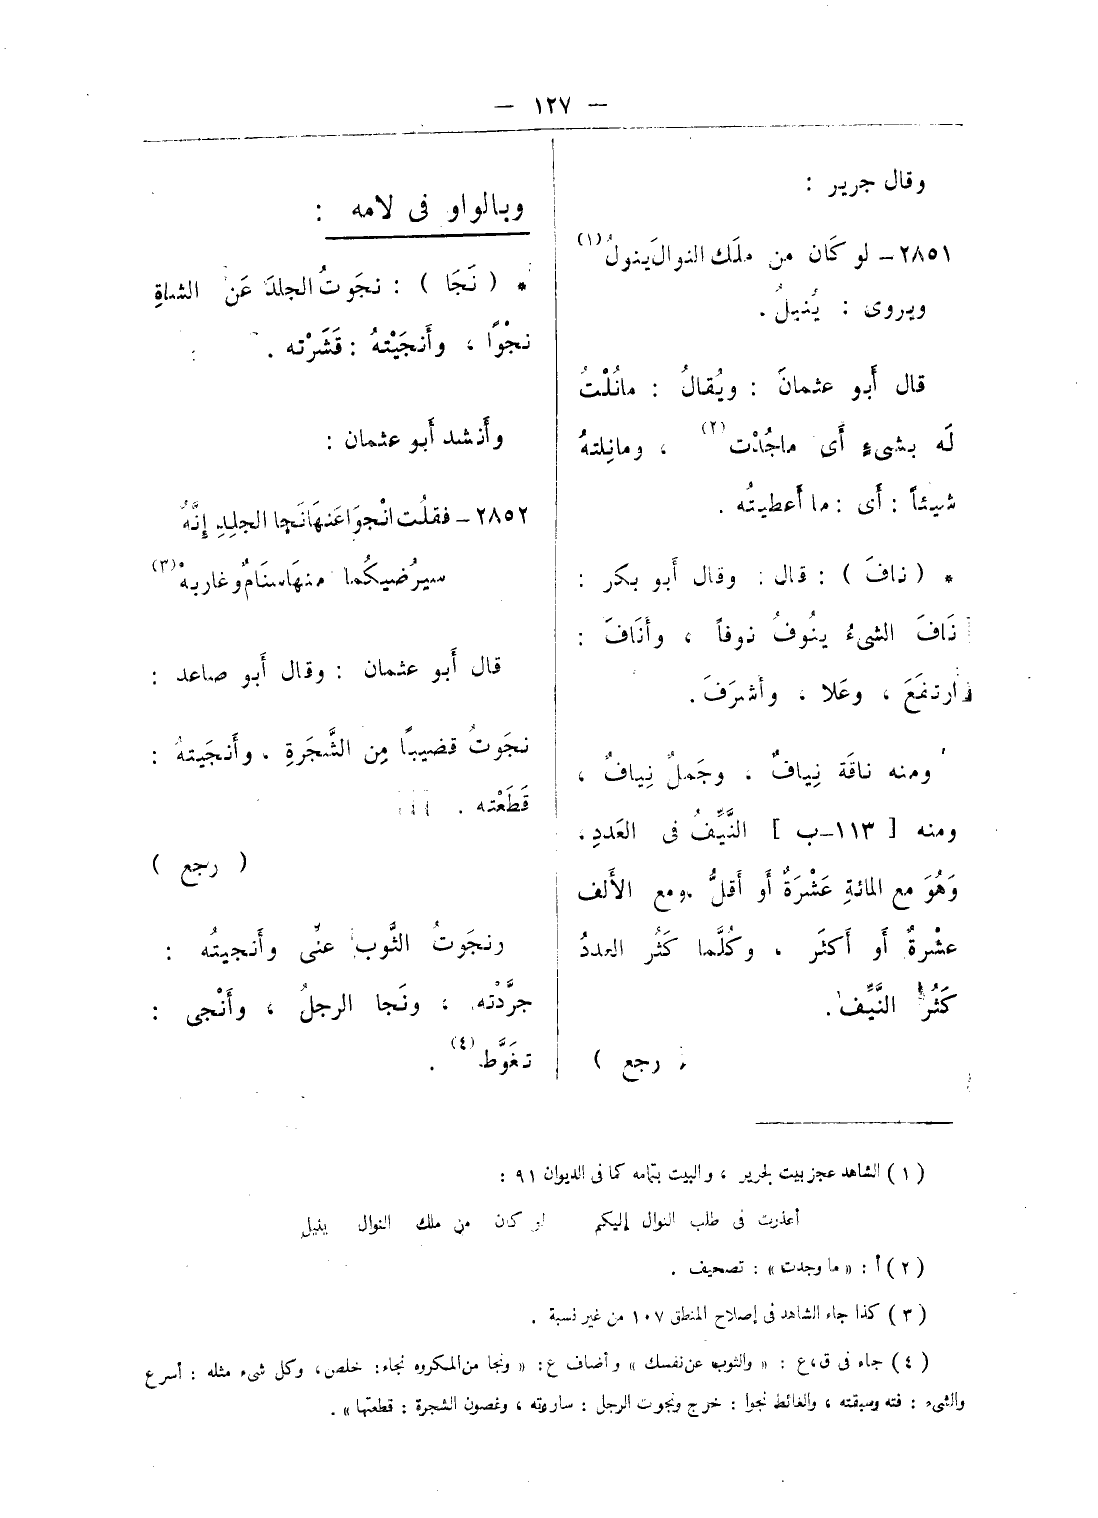 — ١٢٧ —
وقال جرير :
٢٨٥١ – لو كَان من ملَك النوال ينولُ (١)
ويروى : يُنيلُ .
قال أَبو عثمانَ : ويُقالُ : مانُلْتُ
لَه بشىءٍ أَى ماجُدْت (٢) ، ومانِلتهُ
شيئاً : أَى : ما أَعطيتُه .
* ( نافَ ) : قال : وقال أَبو بكر :
نَافَ الشىءُ ينُوفُ نوفاً ، وأنَافَ :
ارتفَعَ ، وعَلا ، وأشرَفَ .
ومنه ناقَة نِيافٌ ، وجَملٌ نِيافٌ ،
ومنه [ ١١٣–ب ] النَّيِّفُ فى العَددِ ،
وَهُوَ مع المائةِ عَشْرَةٌ أو أَقلُّ ومع الأَلف
عشْرةٌ أو أَكثَر ، وكُلَّما كَثُر العددُ
كَثُرَ النَّيِّف .
( رجع )
وبالواو فى لامه :
* ( نَجَا ) : نجَوتُ الجلدَ عَن الشاةِ
نجْوًا ، وأَنجَيْتهُ : قَشَرْته .
وأَنشد أَبو عثمان :
٢٨٥٢ – فقلُت انْجوَا عَنهَا نَجا الجلِدِ إِنَّهُ
سيرُضيكُما منهَا سنَامٌ وغاربهْ (٣)
قال أَبو عثمان : وقال أَبو صاعد :
نجَوتُ قضيبًا مِن الشَّجَرةِ ، وأَنجَيتهُ :
قَطَعْته .
( رجع )
ونجَوتُ الثَّوب عنِّى وأَنجيتُه :
جرَّدْته ، ونَجا الرجلُ ، وأَنْجى :
تغَوَّط (٤) .
( ١ ) الشاهد عجز بيت لجرير ، والبيت بتمامه كما فى الديوان ٩١ :
أعذرت فى طلب النوال إليكم لو كان من ملك النوال ينيل
( ٢ ) أ : « ما وجدت » : تصحيف .
( ٣ ) كذا جاء الشاهد فى إصلاح المنطق ١٠٧ من غير نسبة .
( ٤ ) جاء فى ق ، ع : « والثوب عن نفسك » وأضاف ع : « ونجا من المكروه نجاء : خلص ، وكل شىء مثله : أسرع
والشىء : فته وسبقته ، والغائط نجوا : خرج ونجوت الرجل : ساررته ، وغصون الشجرة : قطعتها » .